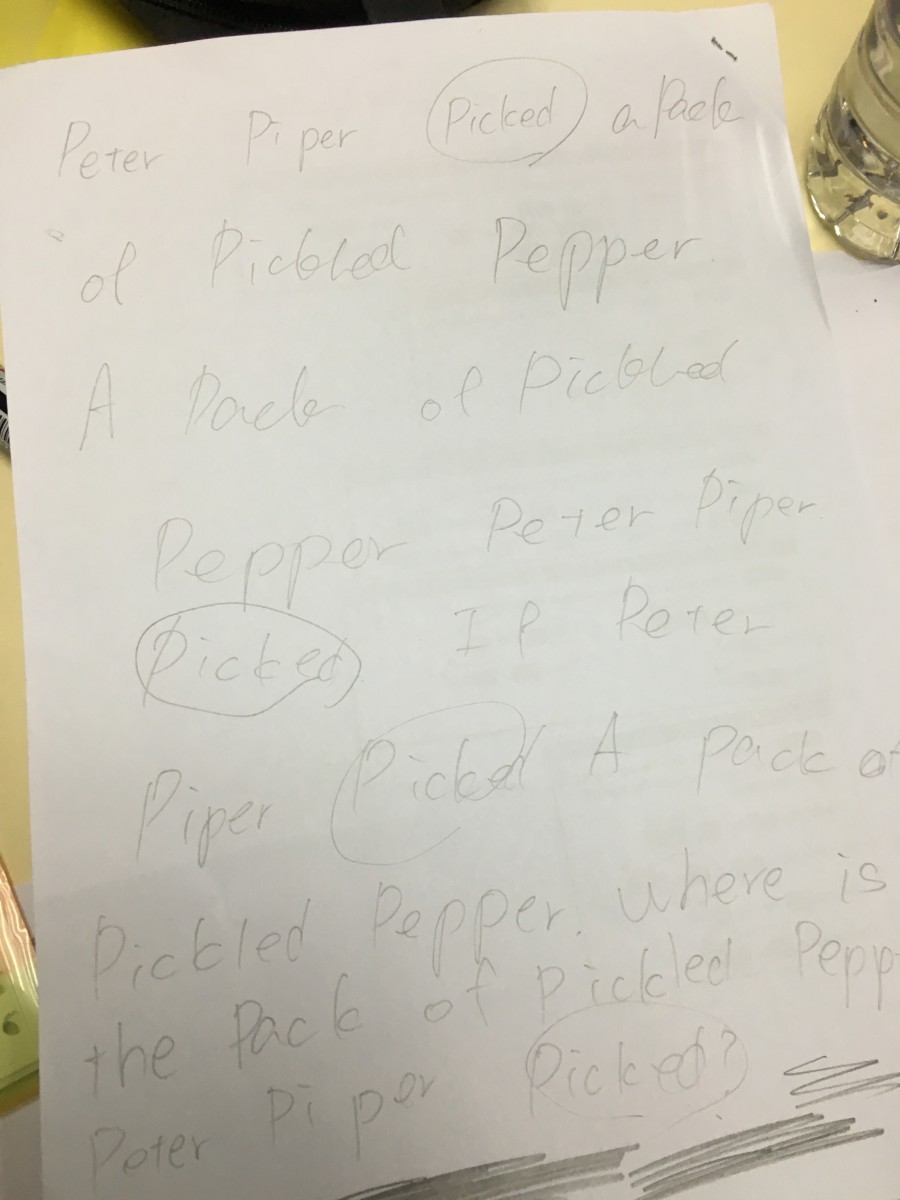 Peter Piper Picked a Pack
of Pickled Pepper.
A Pack of Pickled
Pepper Peter Piper
Picked. If Peter
Piper Picked A Pack of
Pickled Pepper. where is
the Pack of pickled Pepp
Peter Piper Picked?